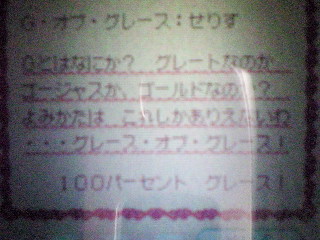 G・オブ・グレース：せりす
Gとはなにか？　グレートなのか
ゴージャスか、ゴールドなのか？
よみかたは　これしかありえないわ
・・・グレース・オブ・グレース！
100パーセント　グレース！